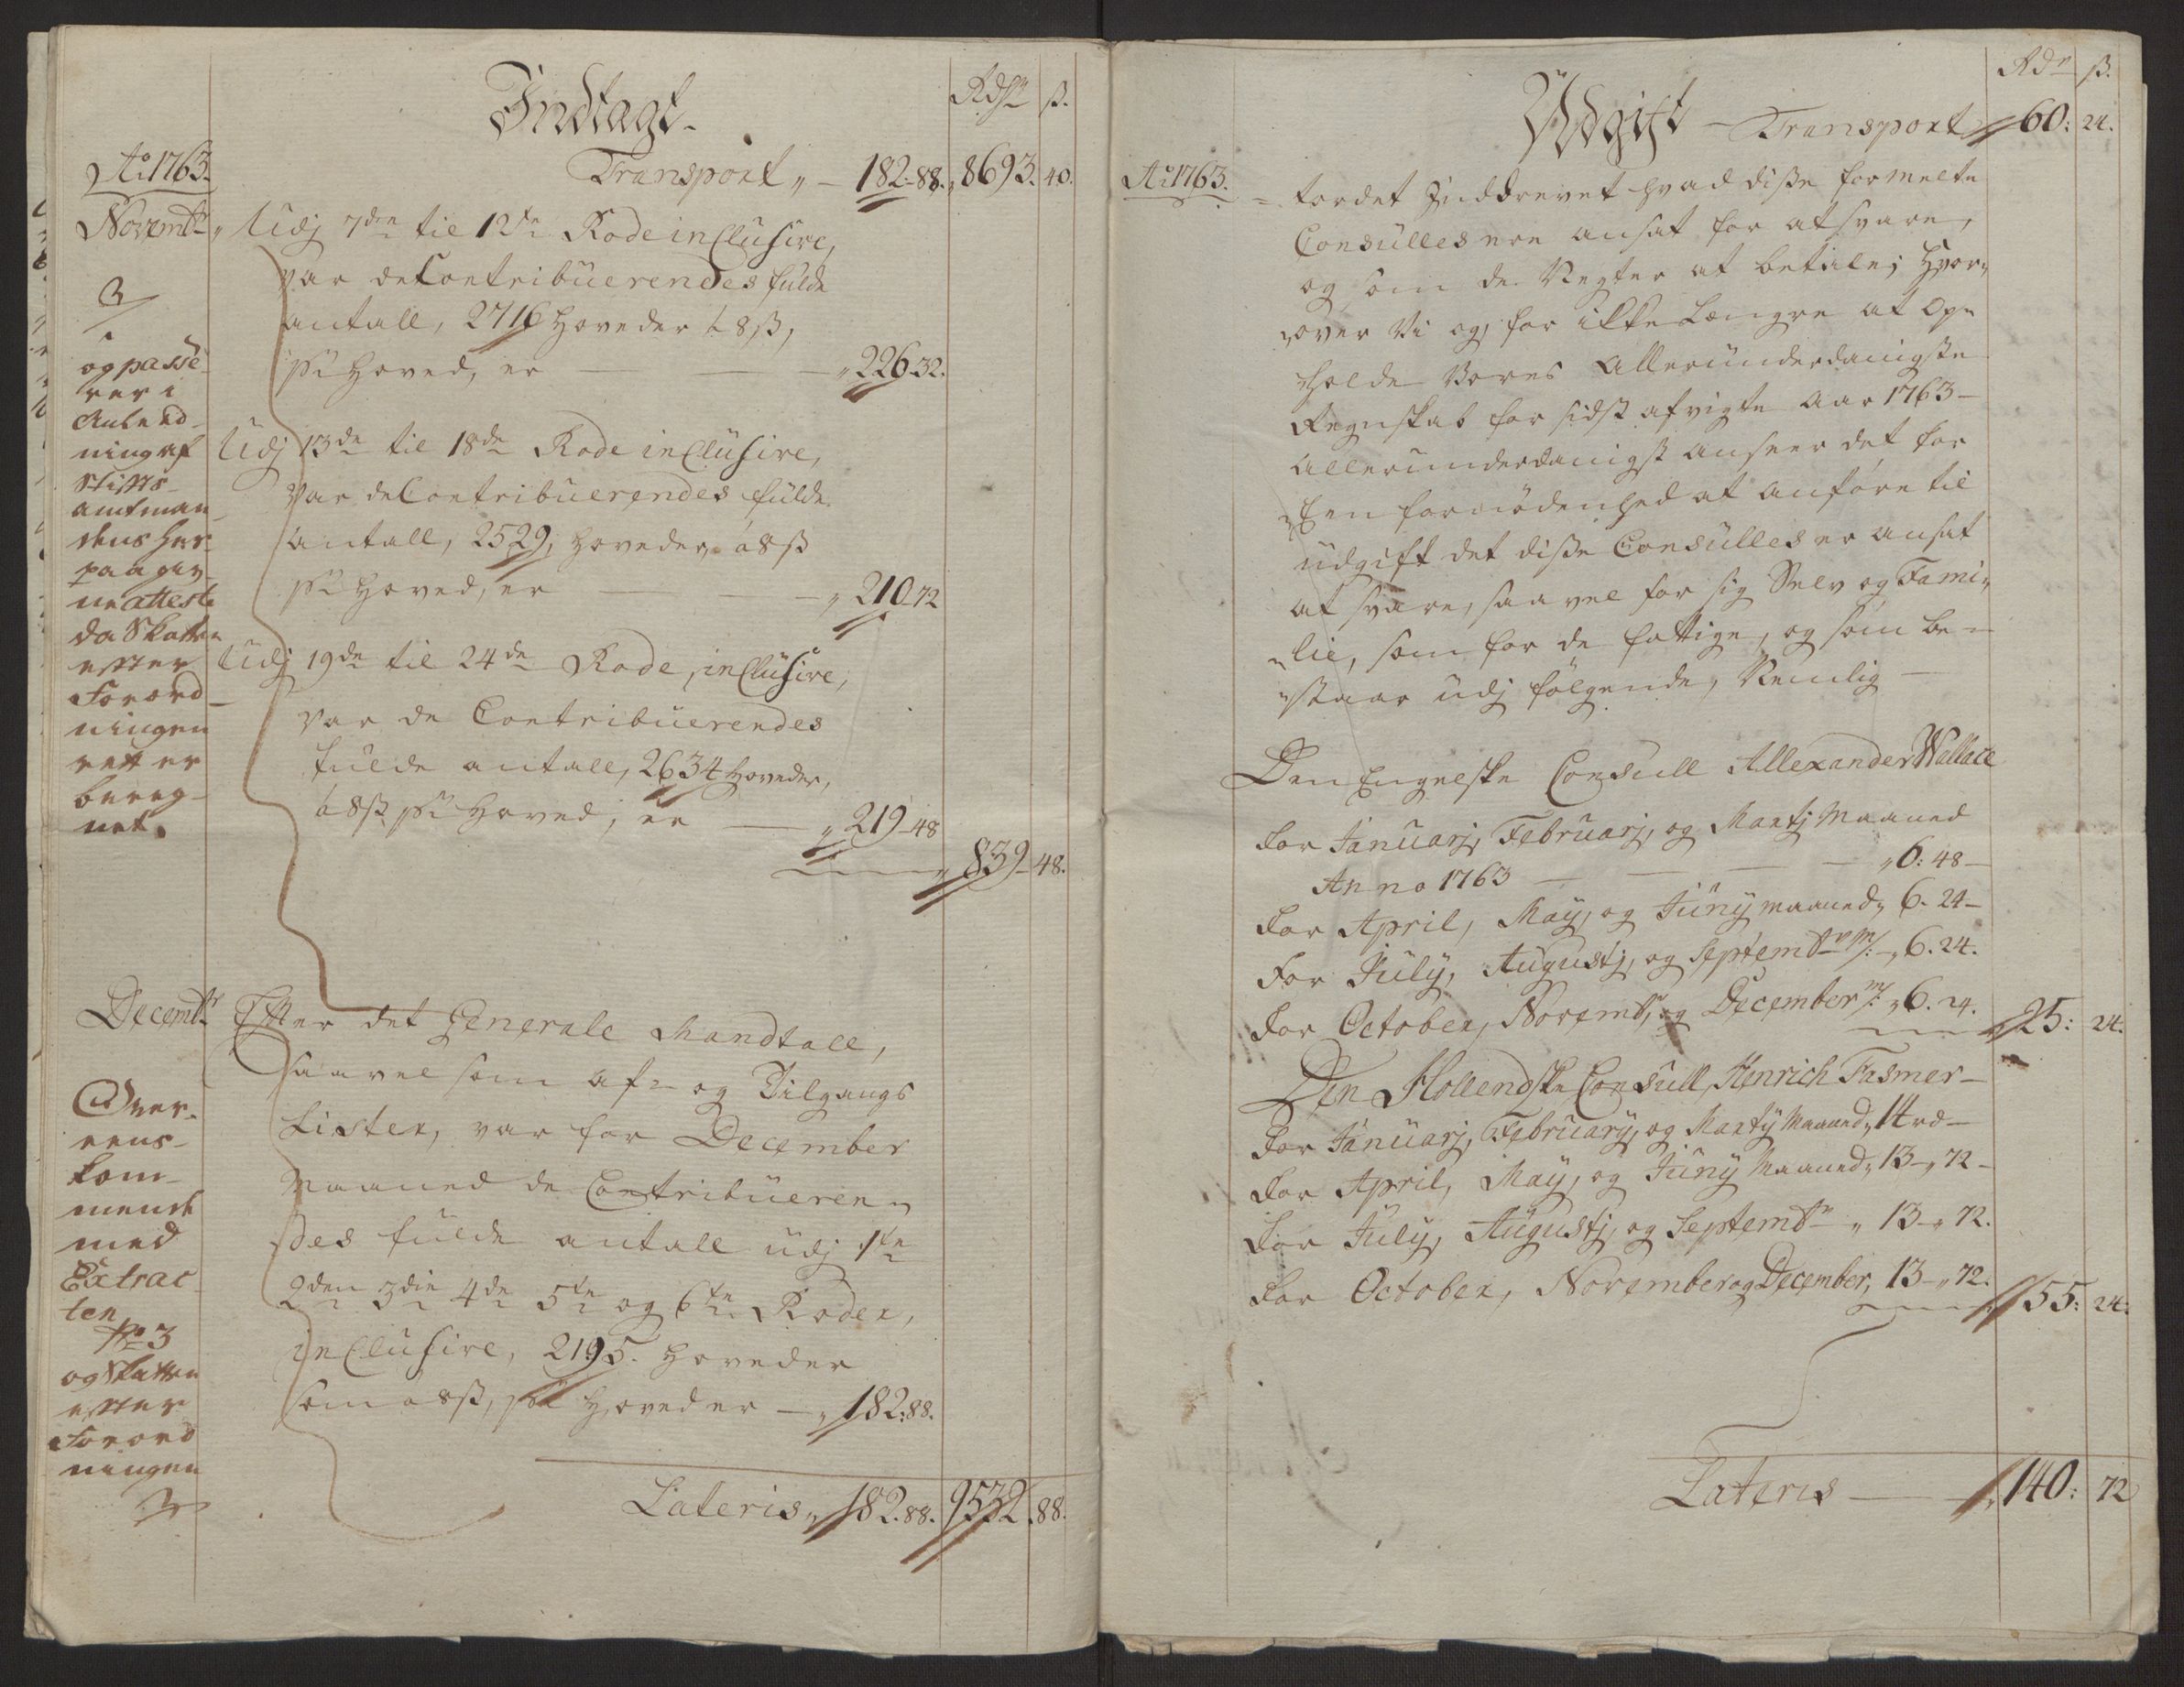 Indtagt
Rdlr ß.
Ao 1763.
Transport „ — 182.88. 8693. 40.
Novembr
Udj 7de til 12te Rode inclusive,
var de Contribuerendes fulde
antall, 2716 Hoveder à 8 ß,
pr Hoved, er — „ 226.32.
og passe-
rer i
Anled-
ning af
Stifts-
amtman-
dens her-
paa giv-
ne attest
da Skatten
efter
Forord-
ningen
rett er
bereg-
net.
Udj 13de til 18de Rode inclusive,
var de Contribuerendes fulde
antall, 2529, Hoveder à 8 ß
pr Hoved, er — „ 210-72
Udj 19de til 24de Rode, inclusive,
var de Contribuerendes
fulde antall, 2634 Hoveder,
à 8 ß pr Hoved, er — „ 219-48
839-48.
Decembr
Efter det Generale Mandtall,
saavel som af- og Tilgangs
Lister, var for December
Maaned de Contribueren-
des fulde antall udj 1te
2den 3die 4de 5te og 6te Roder,
inclusive, 2195. Hoveder
som à 8 ß, pr Hoved er — „ 182:88.
Over-
eens-
kom-
mende
med
Extrac-
ten
No 3
og Skatten
efter
Forord-
ningen
Lateris „ 182.88. 9532.88.
Rdr ß.
Udgift — Transport 60: 24.
Ao 1763.
tordet Inddrevet hvad disse formelte
Consulles ere ansat for at svare,
og som de Negter at betale; Hvor-
over Vi og, for ikke længre at op-
holde Vores Allerunderdanigste
Regnskab for sidst afvigte Aar 1763-
allerunderdanigst anseer det for
Een fornödenhed at anföre til
udgift det disse Consulles er ansat
at svare, saavel for sig Selv og Fami-
lie, som for de fattige, og som be-
staar udj fölgende, Nemlig —
Den Engelske Consull Allexander Wallace
For Januarj, Februarj, og Martj Maaned
Anno 1763 — „ 6: 48 —
For April, May, og Juny Maaned „ 6. 24 —
For July, Augustj, og Septembr M: „ 6. 24.
For October, Novembr, og December M: „ 6. 24.
25: 24.
Den Hollendske Consull, Henrich Fasmer —
For Januarj, Februarij, og Martij Maaned „ 14 rd —
For April, May, og Juny Maaned „ 13 „ 72 —
For July, Augustj, og Septembr „ 13 „ 72.
For October, November og December, 13 „ 72.
55: 24.
Lateris — 140: 72